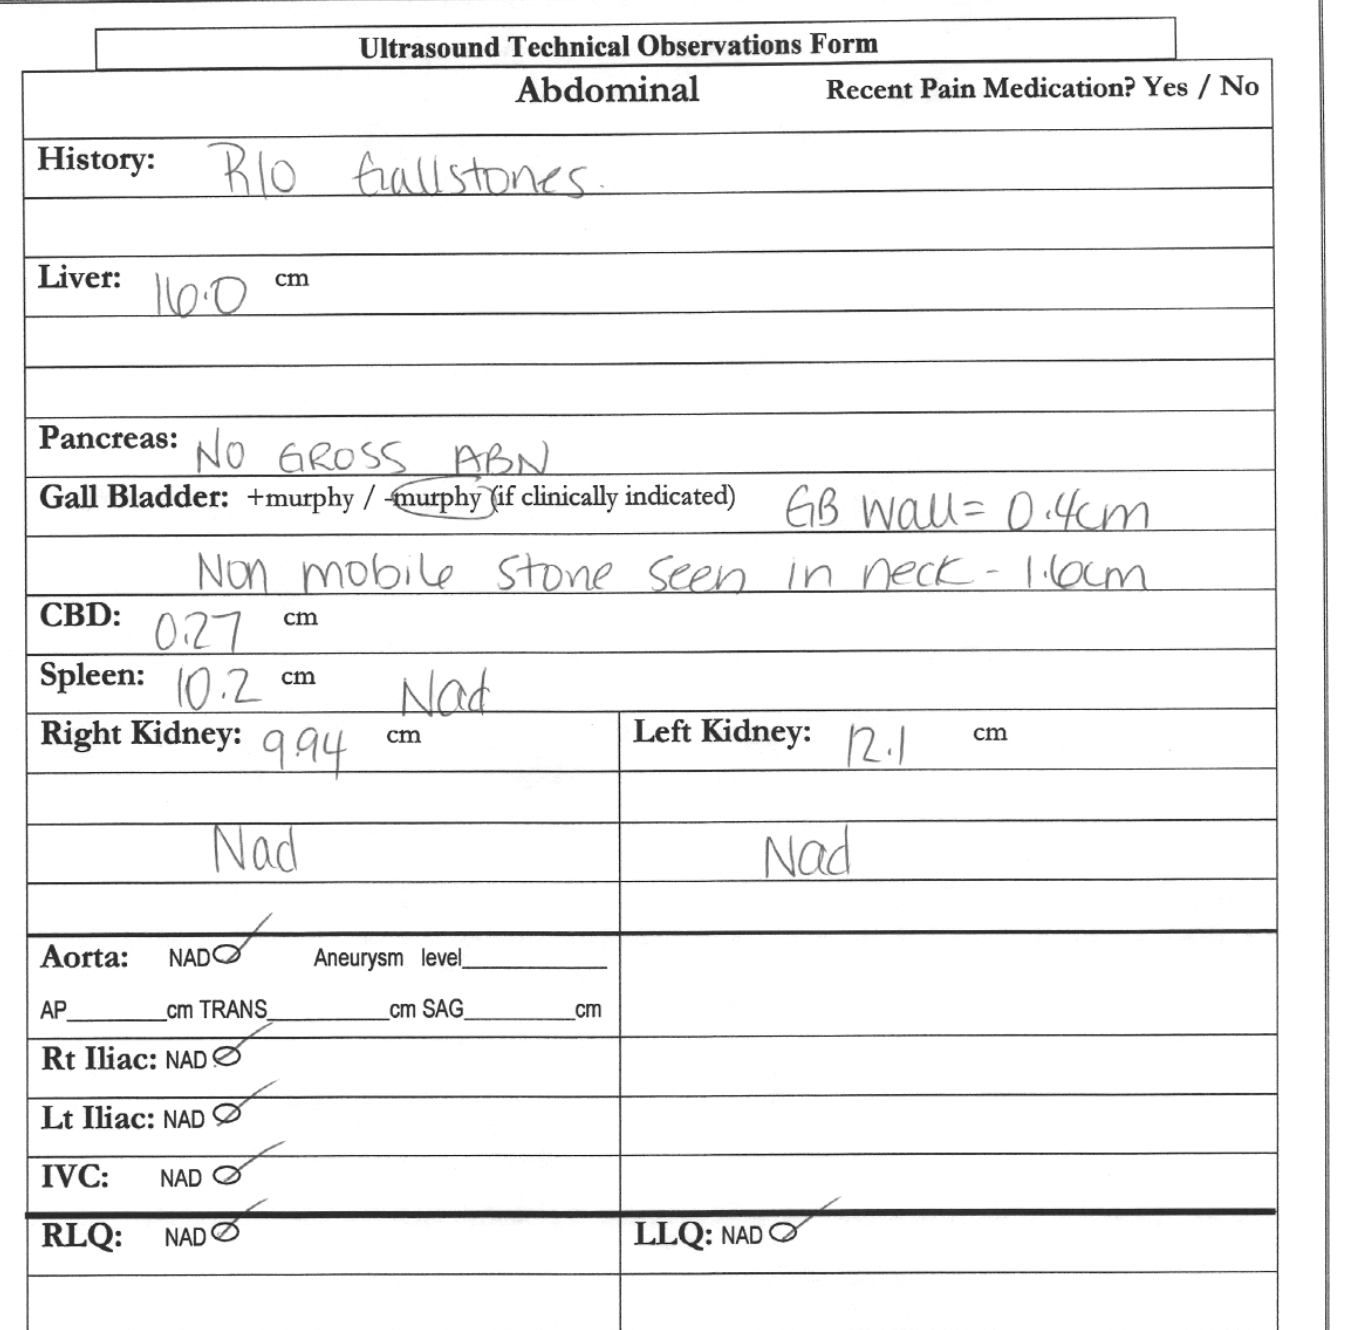 Ultrasound Technical Observations Form
Abdominal Recent Pain Medication? Yes / No
History: R/O Gallstones.
Liver: 16.0 cm
Pancreas: NO GROSS ABN
Gall Bladder: +murphy / -murphy (if clinically indicated) GB Wall = 0.4cm
Non mobile stone seen in neck - 1.6cm
CBD: 0.27 cm
Spleen: 10.2 cm Nad
Right Kidney: 9.94 cm Left Kidney: 12.1 cm
Nad Nad
Aorta: NAD Aneurysm level
AP cm TRANS cm SAG cm
Rt Iliac: NAD
Lt Iliac: NAD
IVC: NAD
RLQ: NAD LLQ: NAD